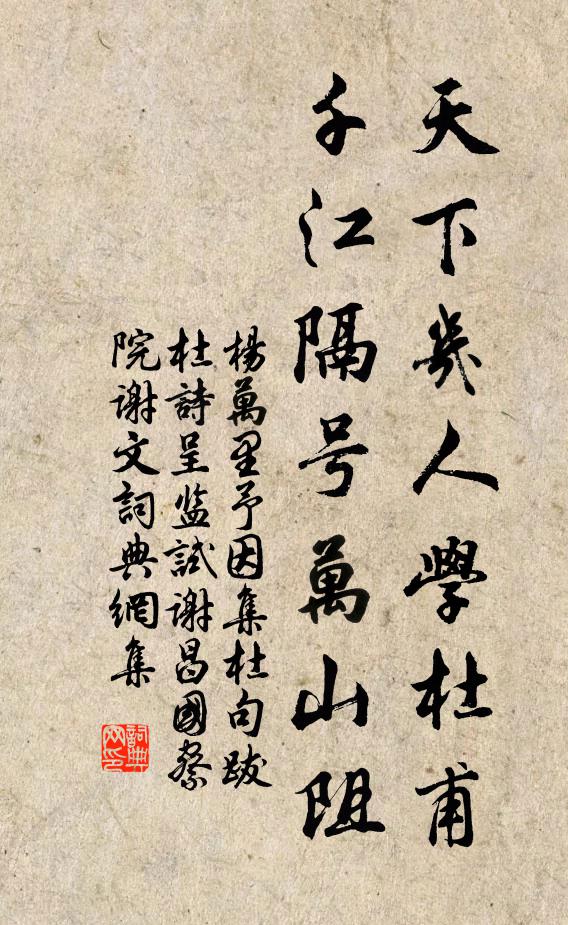 天下幾人學杜甫
千江隔号萬山阻
楊萬里予因集杜句跋
杜詩呈監試謝昌國察
院謝文詞典網集
詞典
网印